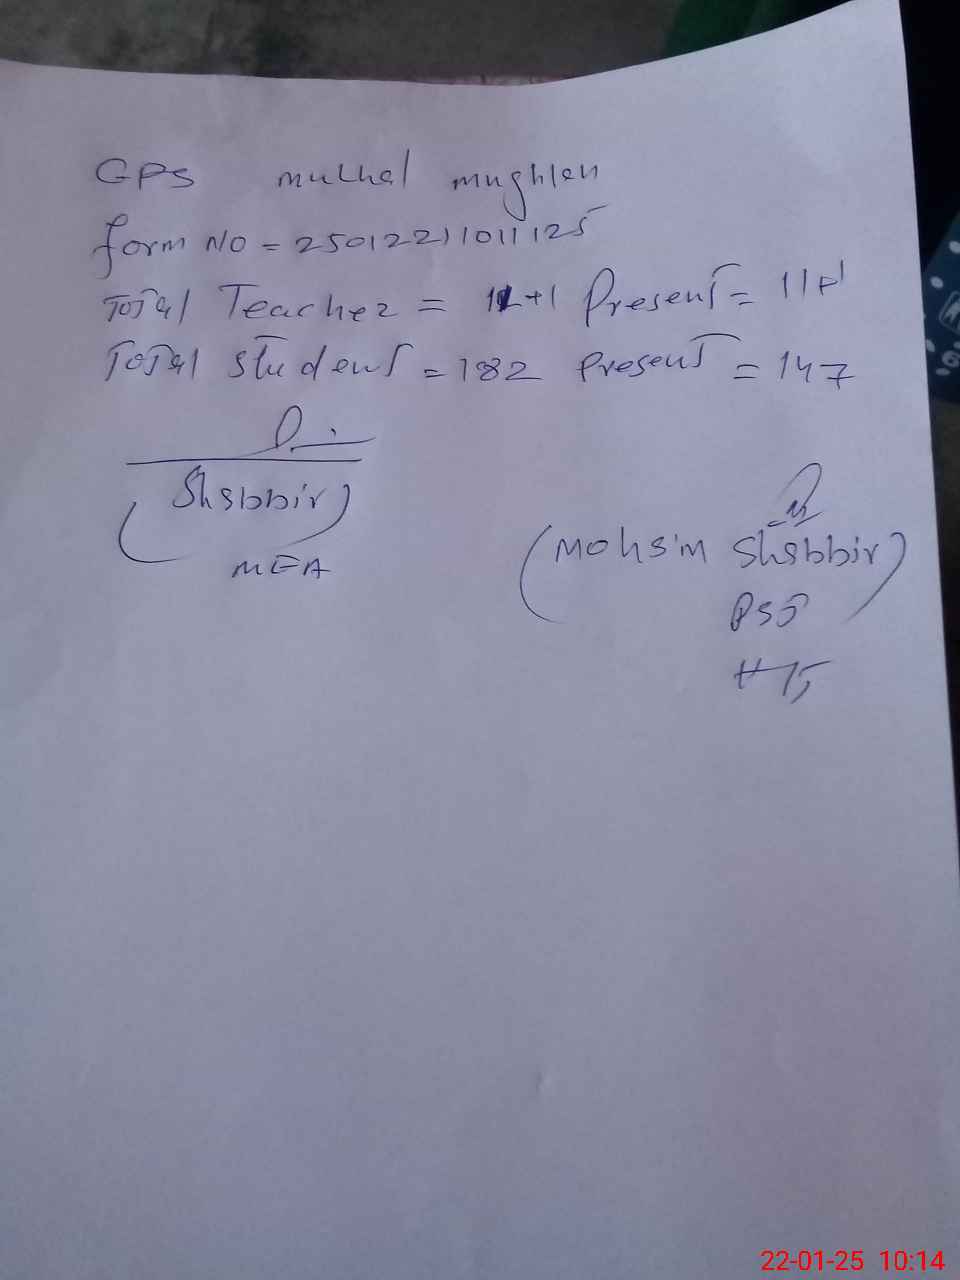 GPS mulhal mughlan
form No = 25012211011125
Total Teacher = 11+1 Present = 11
Total student = 182 Present = 147
(Shabbir)
MEA
(Mohsin Shabbir)
PST
HT
22-01-25 10:14